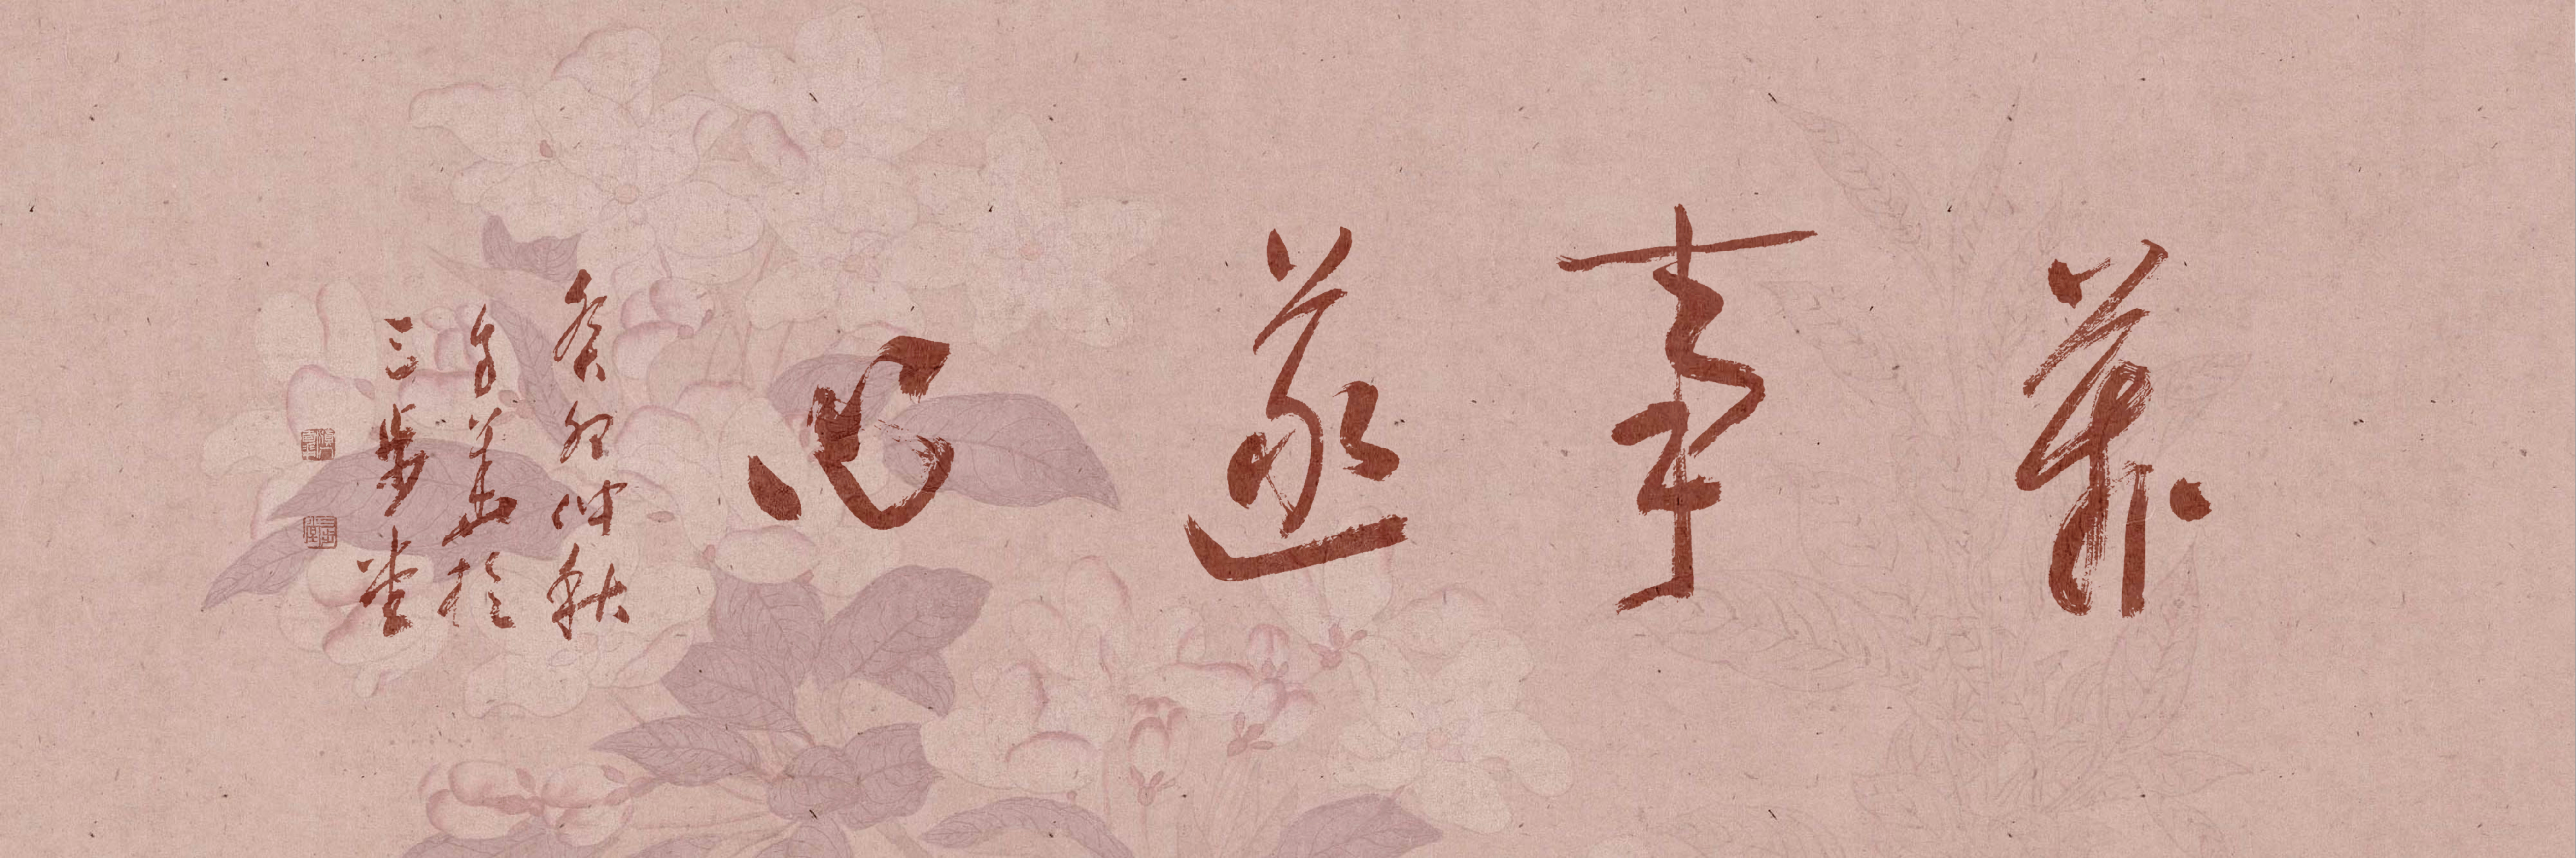 萬事遂心
癸卯仲秋
於
三步堂